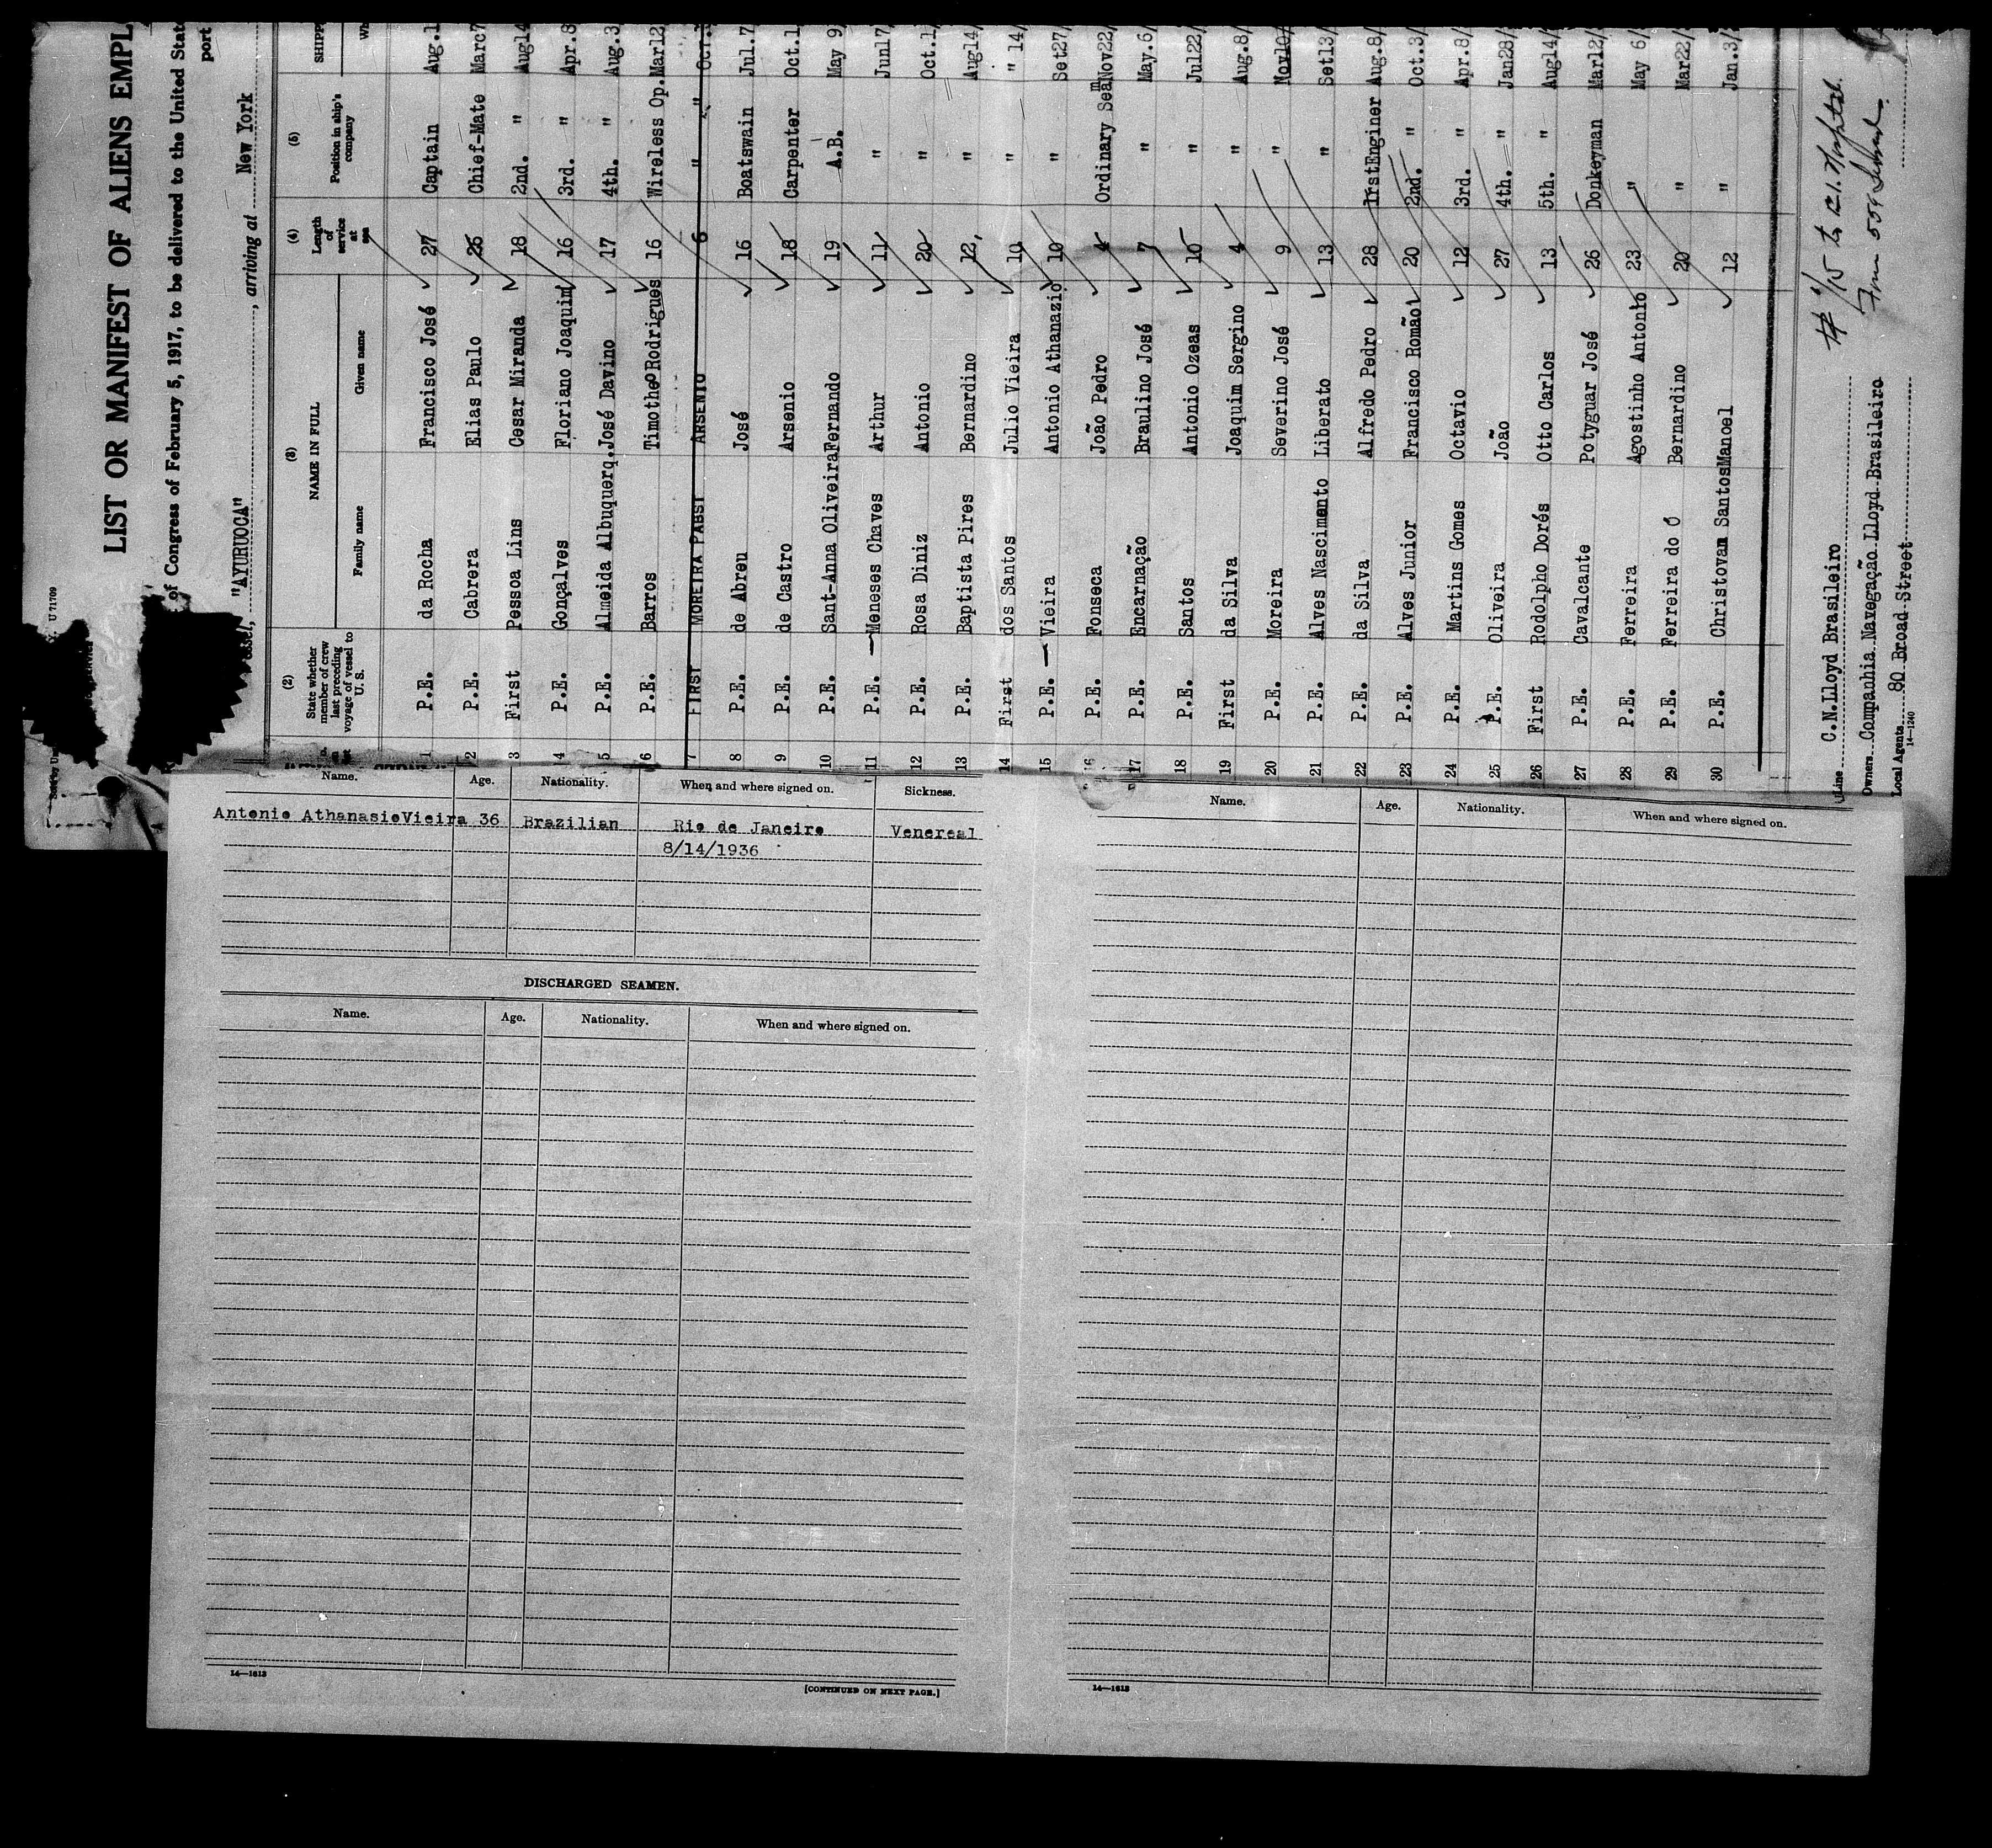 LIST OR MANIFEST OF ALIENS EMPL
of Congress of February 5, 1917, to be delivered to the United Stat
port
"AYURUOCA", arriving at New York
(2) (3) (4) (5)
State whether member of crew last preceding voyage of vessel to U. S.
NAME IN FULL
Family name Given name
Length of service at sea
Position in ship's company
SHIPP
Wh
1 P.E. da Rocha Francisco José 27 Captain Aug.1
2 P.E. Cabrera Elias Paulo 25 Chief-Mate Marc7
3 First Pessoa Lins Cesar Miranda 18 2nd. " Aug14
4 P.E. Gonçalves Floriano Joaquim 16 3rd. " Apr.8
5 P.E. Almeida Albuquerq.José Davino 17 4th. " Aug.3
6 P.E. Barros Timotheo Rodrigues 16 Wireless Op. Mar12
7 FIRST MOREIRA PABST ARSENIO 6 " " Oct.
8 P.E. de Abreu José 16 Boatswain Jul.7
9 P.E. de Castro Arsenio 18 Carpenter Oct.1
10 P.E. Sant-Anna OliveiraFernando 19 A.B. May 9/
11 P.E. Meneses Chaves Arthur 11 " Jun17
12 P.E. Rosa Diniz Antonio 20 " Oct.1/
13 P.E. Baptista Pires Bernardino 12 " Aug14/
14 First dos Santos Julio Vieira 10 " " 14/
15 P.E. Vieira Antonio Athanazio 10 " Set27/
16 P.E. Fonseca João Pedro 4 Ordinary Seam Nov22/
17 P.E. Encarnação Braulino José 7 " May.6/
18 P.E. Santos Antonio Ozeas 10 " Jul22/
19 First da Silva Joaquim Sergino 4 " Aug.8/
20 P.E. Moreira Severino José 9 " Nov10/
21 P.E. Alves Nascimento Liberato 13 " Set13/
22 P.E. da Silva Alfredo Pedro 28 1rstEnginer Aug.8/
23 P.E. Alves Junior Francisco Romão 20 2nd. " Oct.3/
24 P.E. Martins Gomes Octavio 12 3rd. " Apr.8/
25 P.E. Oliveira João 27 4th. " Jan28/
26 First Rodolpho Dorés Otto Carlos 13 5th. " Aug14/
27 P.E. Cavalcante Potyguar José 26 Donkeyman Mar12/
28 P.E. Ferreira Agostinho Antonio 23 " May 6/
29 P.E. Ferreira do Ó Bernardino 20 " Mar22/
30 P.E. Christovam SantosManoel 12 " Jan.3/
Line C.N.Lloyd Brasileiro
Owners Companhia Navegação Lloyd Brasileiro
Local Agents 80 Broad Street
14—1240
Name. Age. Nationality. When and where signed on. Sickness.
Antonio AthanasioVieira 36 Brazilian Rio de Janeiro Venereal
8/14/1936
DISCHARGED SEAMEN.
Name. Age. Nationality. When and where signed on.
14—1613
[CONTINUED ON NEXT PAGE.]
Name. Age. Nationality. When and where signed on.
14—1613